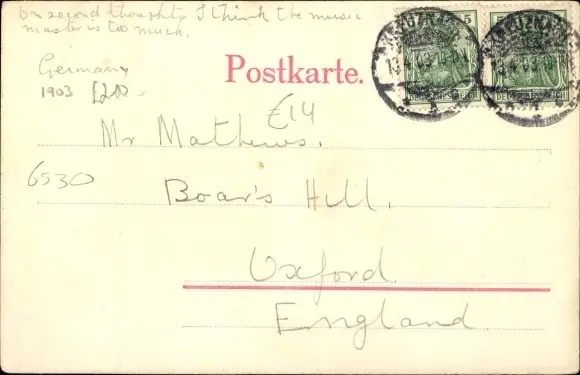 On second thoughts I think the music
master is too much.
Germany
1903 £2.00
Postkarte.
5
13.4.03
DEUTSCHES REICH
€14
Mr Mathews.
6530
Boar's Hill.
Oxford
England